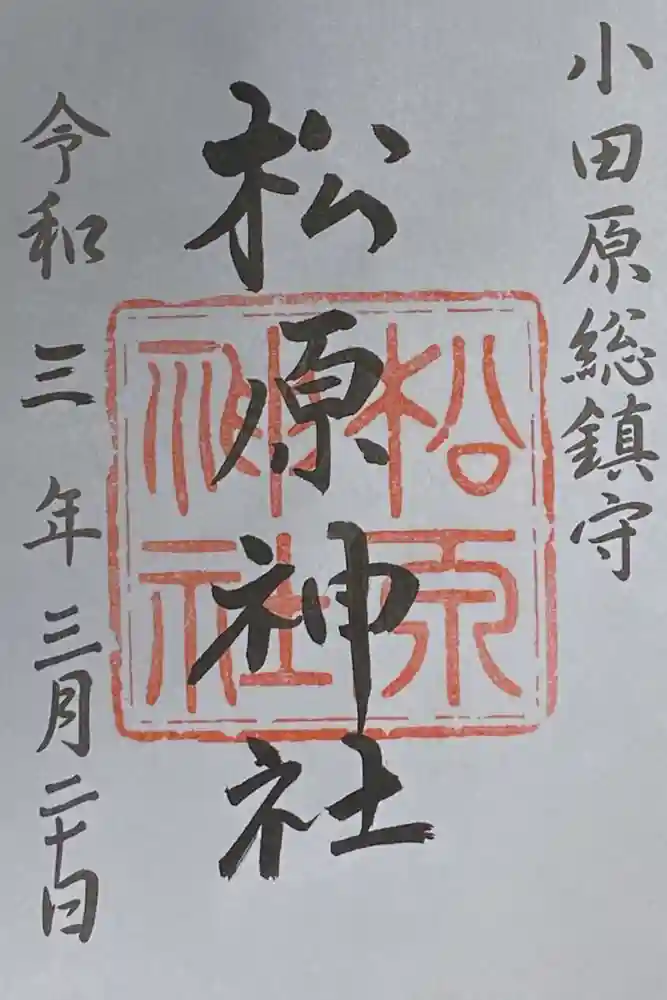 小田原総鎮守
松原神社
松原神社
令和三年三月二十日